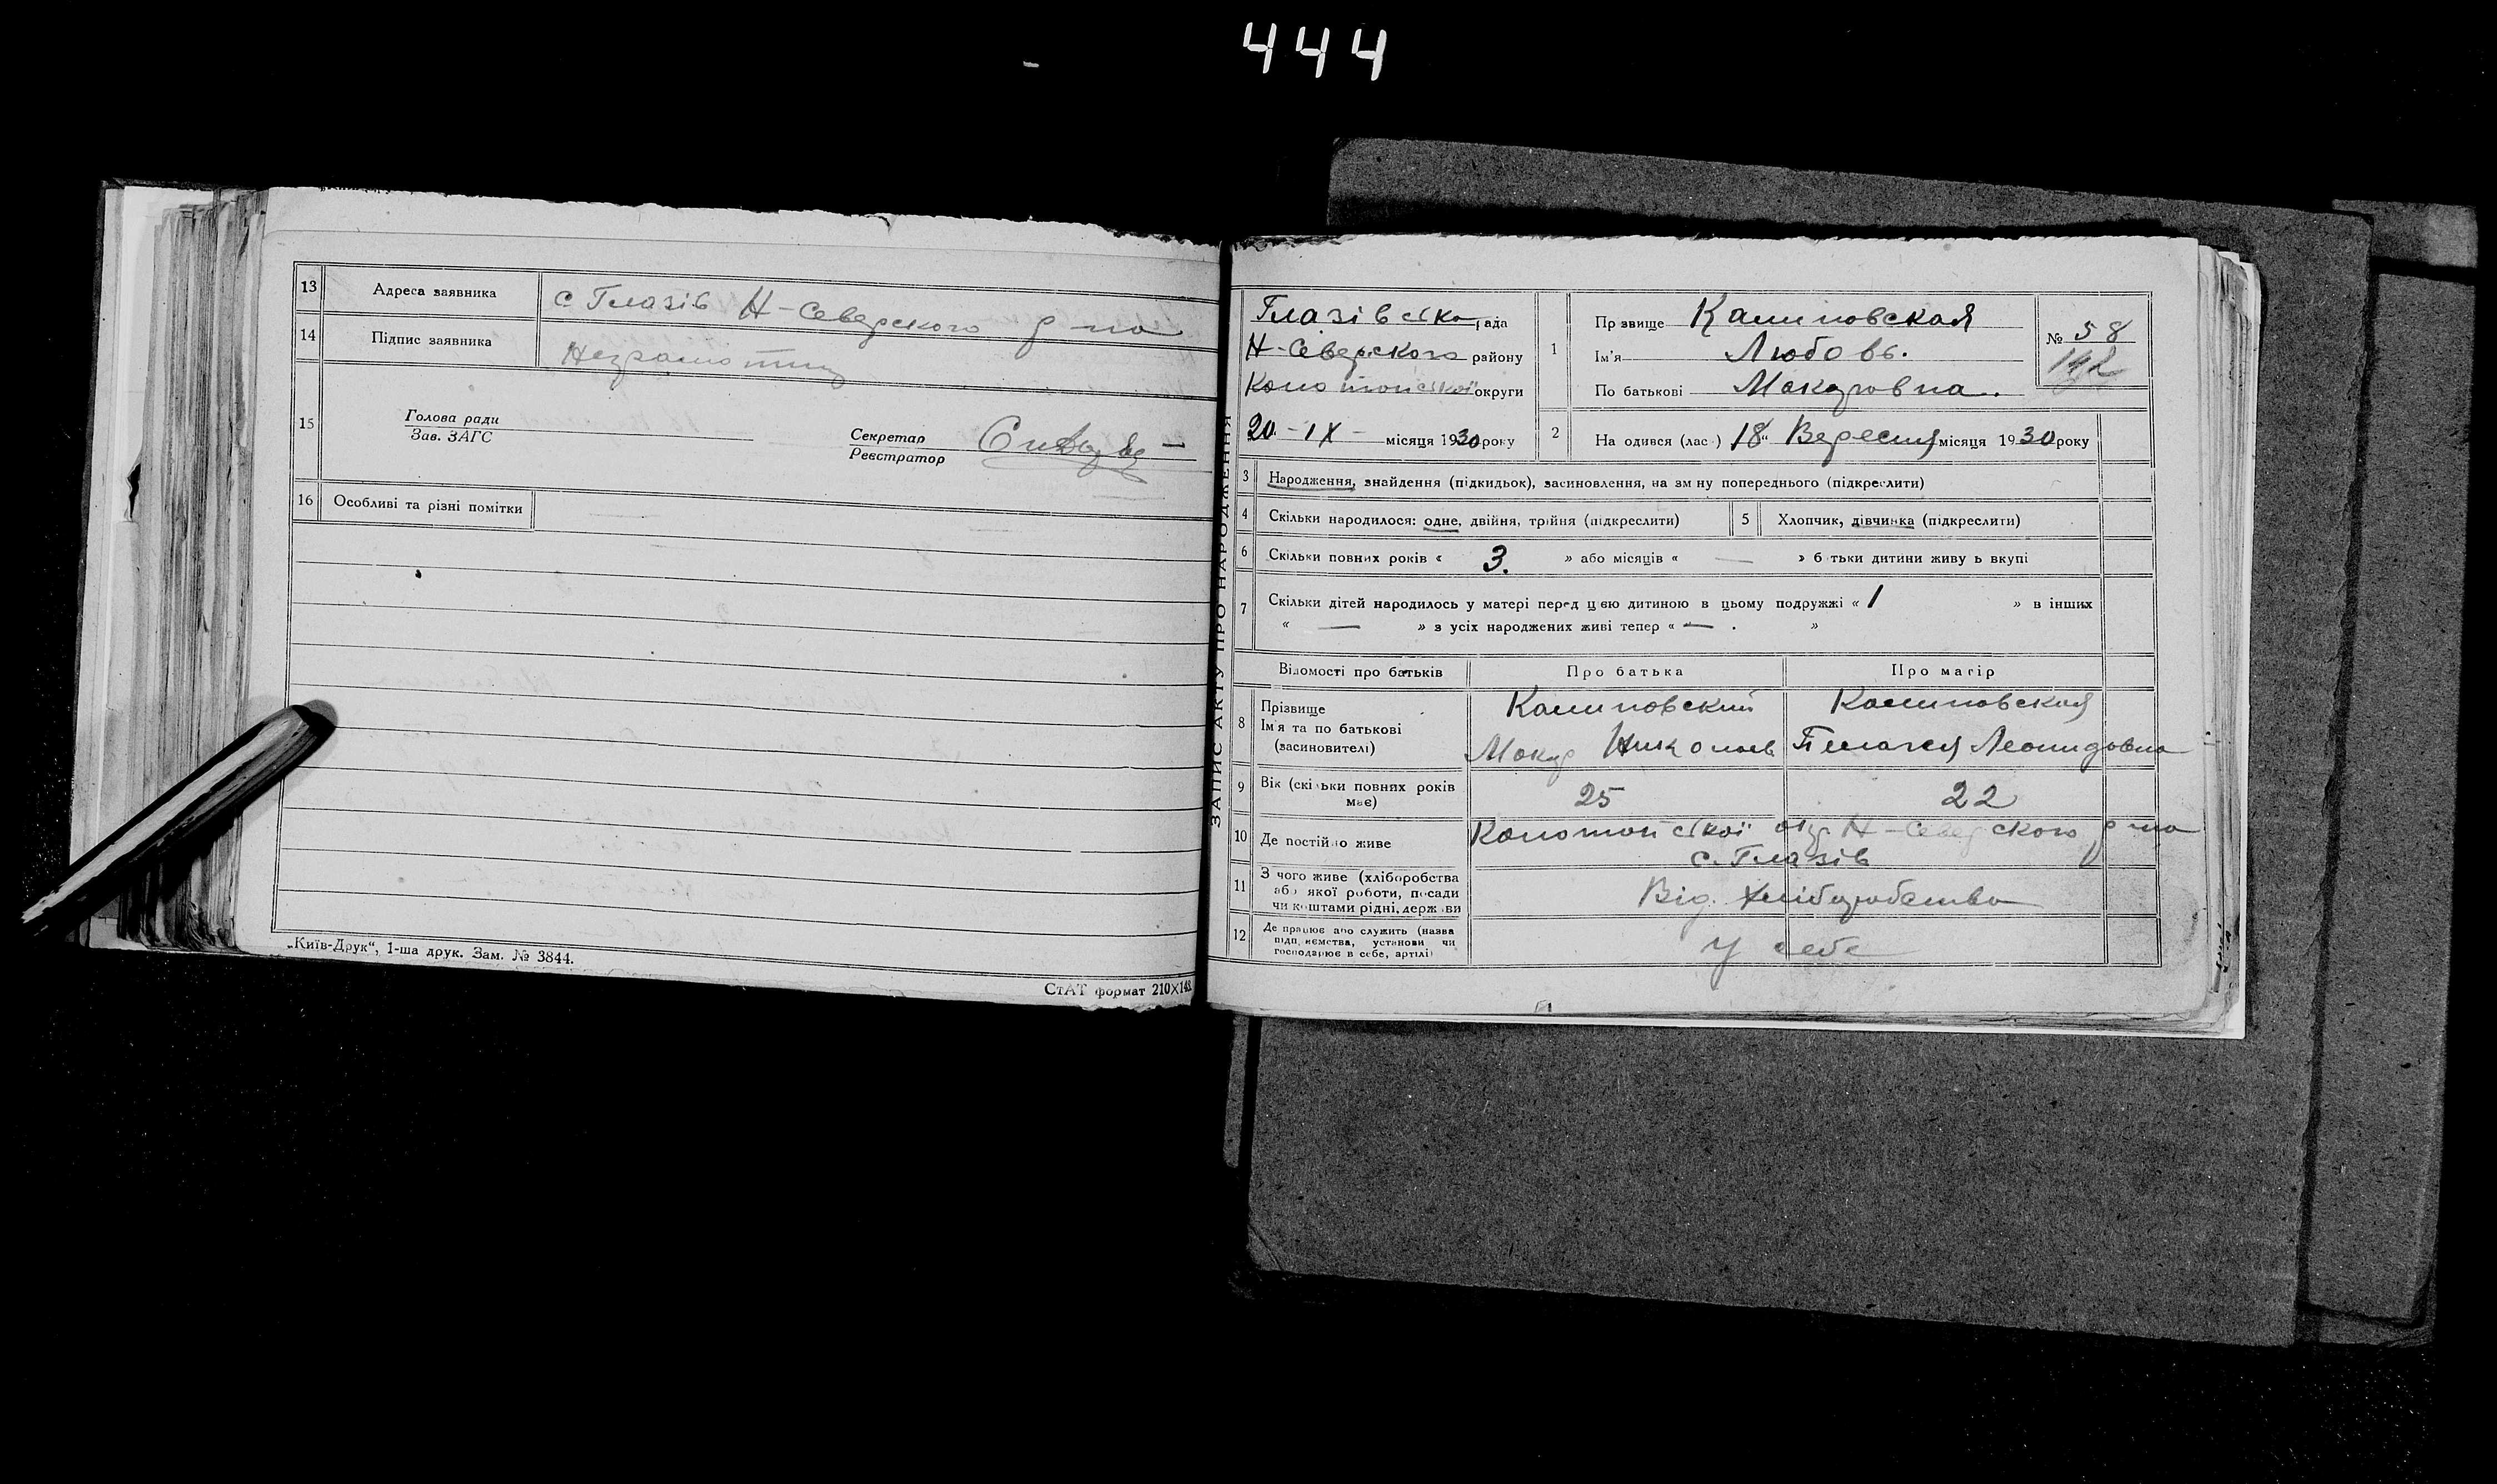 444
13 Адреса заявника с Глазів Н-Северского р-на
14 Підпис заявника Неграмотний
15 Голова ради
Зав. ЗАГС
Секретар
Реєстратор
16 Особливі та різні помітки
„Київ-Друк“, 1-ша друк. Зам. № 3844.
СтАТ формат 210X148
ЗАПИС АКТУ ПРО НАРОДЖЕННЯ
Глазівська рада
Н-Северского району
Конотопської округи
20-IX- місяця 1930 року
1 Пр звище Калиновская
Ім'я Любовь.
По батькові Макаровна.
№ 58
2 На одився (лас ) 18 " Вересня місяця 1930 року
3 Народження, знайдення (підкидьок), засиновлення, на зм ну попереднього (підкреслити)
4 Скільки народилося: одне, двійня, трійня (підкреслити) 5 Хлопчик, дівчинка (підкреслити)
6 Скільки повних років « 3. » або місяців « — » б тьки дитини живу ь вкупі
7 Скільки дітей народилось у матері перед цією дитиною в цьому подружжі « 1 » в інших
« — » з усіх народжених живі тепер « — . »
Відомості про батьків Про батька Про матір
8 Прізвище
Ім'я та по батькові
(засиновителі)
Калиновский
Макар Николаев
Калиновская
Пелагея Леонидовна
9 Вік (скільки повних років
має)
25 22
10 Де постійно живе Конотопської окр Н-Северского р-на
с. Глазів
11 З чого живе (хліборобства
або якої роботи, посади
чи коштами рідні, держави
Від. хліборобства
12 Де працює або служить (назва
підприємства, установи чи
господарює в себе, артілі)
У себе